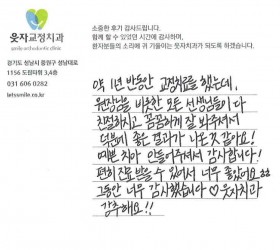 웃자교정치과
family orthodontic clinic
경기도 성남시 중원구 성남대로
1156 도림타워 3,4층
031 606 0282
letysmile.co.kr
소중한 후기 감사드립니다.
함께 할 수 있었던 시간에 감사하며,
환자분들의 소리에 귀 기울이는 웃자치과가 되도록 하겠습니다.
약 1년 반동안 교정치료를 했는데,
원장님을 비롯한 모든 선생님들이 다
친절하시고 꼼꼼하게 잘 봐주셔서
덕분에 좋은 결과가 나온것 같아요!
예쁜 치아 만들어주셔서 감사합니다!
편히 진료 받을 수 있어서 너무 좋았어요
그동안 너무 감사했습니다♡ 웃자치과
강추해요!!